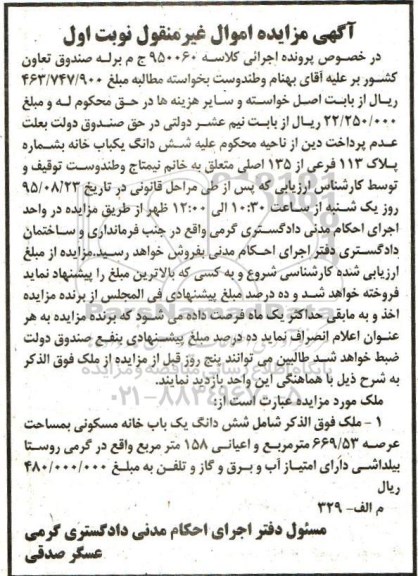 آگهی مزایده اموال غیر منقول نوبت اول
در خصوص پرونده اجرائی کلاسه ۹۵۰۰۶۰ ج م برله صندوق تعاون
کشور بر علیه آقای بهنام وطندوست بخواسته مطالبه مبلغ ۴۶۳/۷۴۷/۹۰۰
ریال از بابت اصل خواسته و سایر هزینه ها در حق محکوم له و مبلغ
۲۲/۲۵۰/۰۰۰ ریال از بابت نیم عشر دولتی در حق صندوق دولت بعلت
عدم پرداخت دین از ناحیه محکوم علیه شش دانگ یکباب خانه بشماره
پلاک ۱۱۳ فرعی از ۱۳۵ اصلی متعلق به خانم نیمتاج وطندوست توقیف و
توسط کارشناس ارزیابی که پس از طی مراحل قانونی در تاریخ ۹۵/۰۸/۲۳
روز یک شنبه از ساعت ۱۰:۳۰ الی ۱۲:۰۰ ظهر از طریق مزایده در واحد
اجرای احکام مدنی دادگستری گرمی واقع در جنب فرمانداری و ساختمان
دادگستری دفتر اجرای احکام مدنی بفروش خواهد رسید.مزایده از مبلغ
ارزیابی شده کارشناسی شروع و به کسی که بالاترین مبلغ را پیشنهاد نماید
فروخته خواهد شد و ده درصد مبلغ پیشنهادی فی المجلس از برنده مزایده
اخذ و به مابقی حداکثر یک ماه فرصت داده می شود که برنده مزایده به هر
عنوان اعلام انصراف نماید ده درصد مبلغ پیشنهادی بنفع صندوق دولت
ضبط خواهد شد طالبین می توانند پنج روز قبل از مزایده از ملک فوق الذکر
به شرح ذیل با هماهنگی این واحد بازدید نمایند.
ملک مورد مزایده عبارت است از:
۱ - ملک فوق الذکر شامل شش دانگ یک باب خانه مسکونی بمساحت
عرصه ۶۶۹/۵۳ مترمربع و اعیانی ۱۵۸ متر مربع واقع در گرمی روستا
بیلداشی دارای امتیاز آب و برق و گاز و تلفن به مبلغ ۴۸۰/۰۰۰/۰۰۰
ریال
م الف- ۳۲۹
مسئول دفتر اجرای احکام مدنی دادگستری گرمی
عسگر صدقی